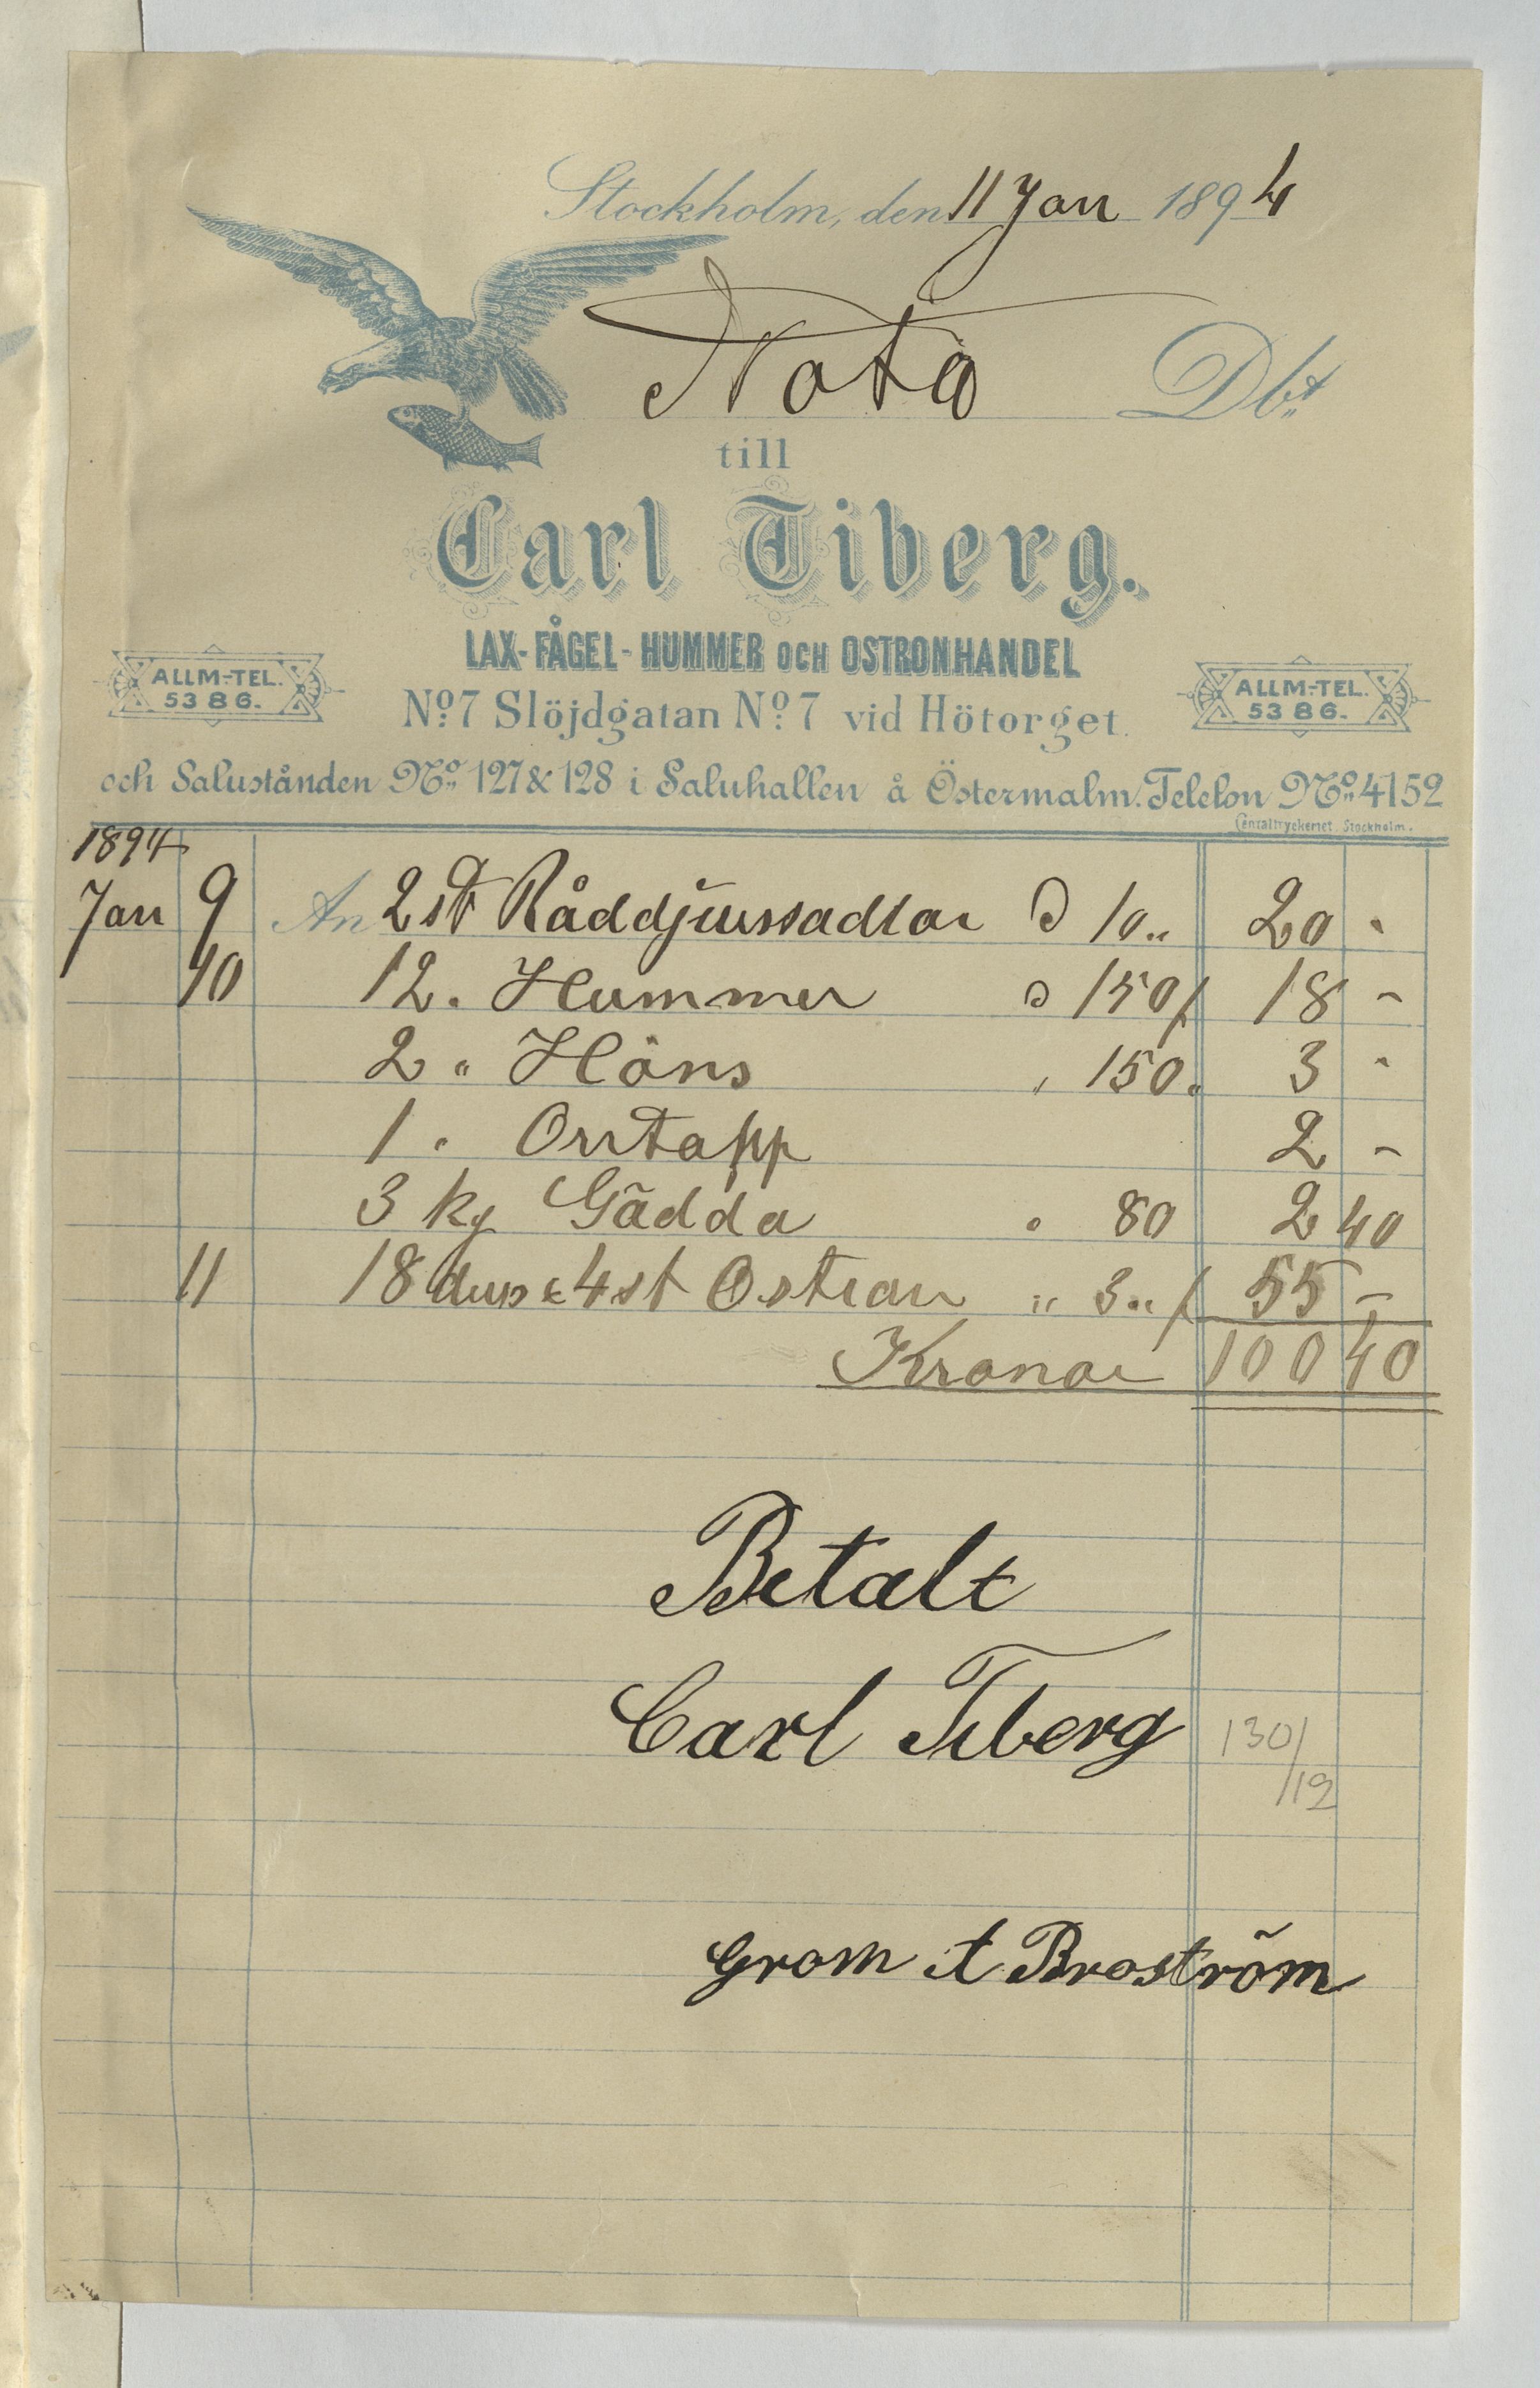 Stockholm, den 11 Jan 1894
Nota Dbt
till
Carl Tiberg.
LAX-FÅGEL-HUMMER OCH OSTRONHANDEL
ALLM-TEL. 5386.
No 7 Slöjdgatan No 7 vid Hötorget.
ALLM-TEL. 5386.
och Salustånden No 127 & 128 i Saluhallen å Östermalm. Telefon No 4152
Centraltryckeriet, Stockholm.
1894
Jan 9 An 2 st Råddjurssadlar à 10" 20 "
10 12 " Hummer à 150 18 -
2 " Höns " 150 3 "
1 " Orrtapp 2 -
3 kg Gädda " 80 2 40
11 18 dus & 4 st Ostron " 3" 55 -
Kronor 100 40
Betalt
Carl Tiberg
130/
/12
Grom A Broström